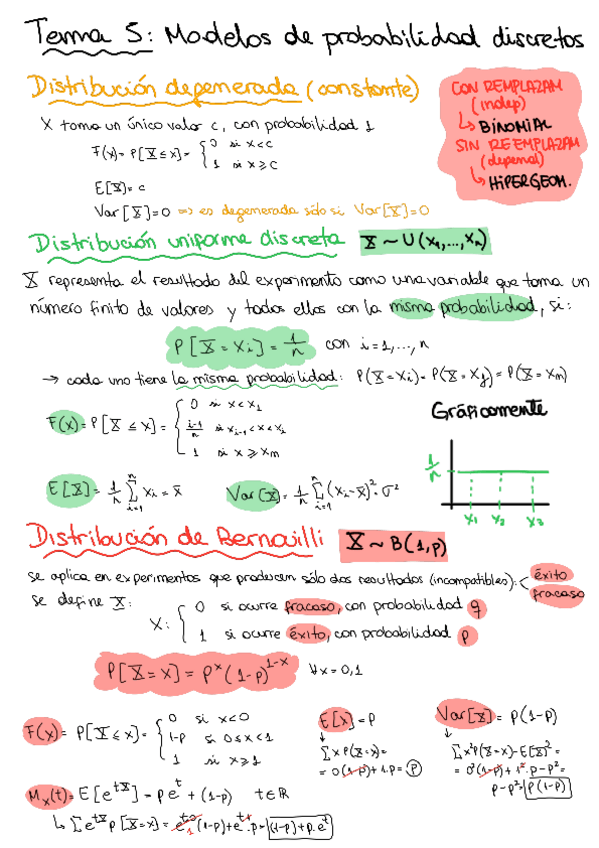 Tema 5: Modelos de probabilidad discretos
Distribución degenerada (constante)
X toma un único valor c, con probabilidad 1
F(x) = P[X ≤ x] = { 0 si x < c
1 si x ≥ c
E[X] = c
Var[X] = 0 => es degenerada sólo si Var[X] = 0
CON REMPLAZAM
(indep)
↳ BINOMIAL
SIN REEMPLAZAM
(depend)
↳ HIPERGEOM.
Distribución uniforme discreta X ~ U(x₁,...,xₙ)
X representa el resultado del experimento como una variable que toma un
número finito de valores y todos ellos con la misma probabilidad, si:
P[X = xᵢ] = 1/n con i = 1, ..., n
→ cada uno tiene la misma probabilidad: P(X = xᵢ) = P(X = xⱼ) = P(X = xₘ)
F(x) = P[X ≤ x] = { 0 si x < x₁
i-1/n si xᵢ₋₁ < x < xᵢ
1 si x ≥ xₘ
Gráficamente
1/n
x₁ x₂ x₃
E[X] = 1/n ∑ⁿᵢ₌₁ xᵢ = x̄ Var[X] = 1/n ∑ⁿᵢ₌₁ (xᵢ - x̄)² = σ²
Distribución de Bernouilli X ~ B(1,p)
se aplica en experimentos que producen sólo dos resultados (incompatibles): < éxito
fracaso
Se define X:
X: { 0 si ocurre fracaso, con probabilidad q
1 si ocurre éxito, con probabilidad p
P[X = x] = pˣ(1-p)¹⁻ˣ ∀x = 0,1
F(x) = P[X ≤ x] = { 0 si x < 0
1-p si 0 ≤ x < 1
1 si x ≥ 1
E[X] = p
↓
∑ x P(X = x) =
= 0(1-p) + 1·p = p
Var[X] = p(1-p)
↓
∑ x² P(X = x) - E[X]² =
= 0²(1-p) + 1²·p - p² =
p - p² = p(1-p)
Mₓ(t) = E[eᵗˣ] = peᵗ + (1-p) t ∈ ℝ
↳ ∑ eᵗˣ P[X = x] = eᵗ⁰(1-p) + eᵗ¹·p = (1-p) + p·eᵗ
1